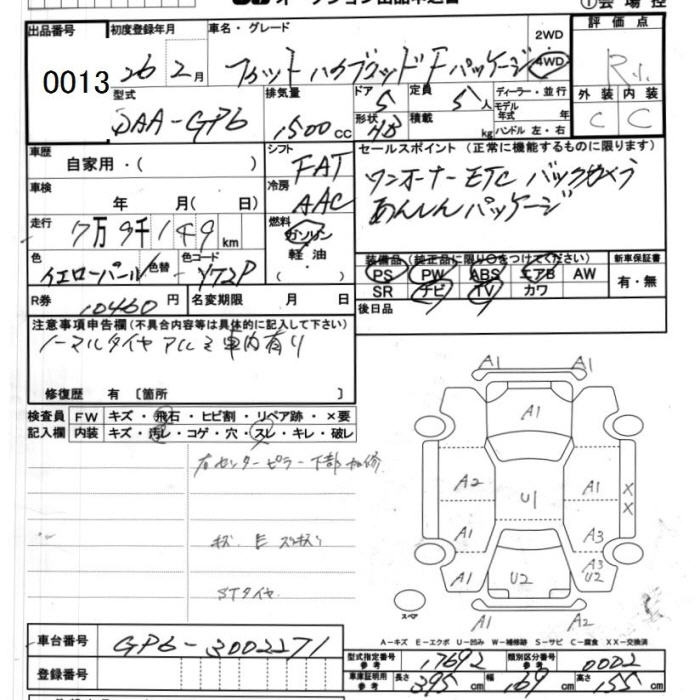 オークション出品申込書
①会場控
出品番号
0013
初度登録年月
26 2月
車名・グレード
フィットハイブリッドFパッケージ
2WD
4WD
評価点
R1
型式
DAA-GP6
排気量
1500cc
ドア
5
形状
HB
定員
5人
積載
kg
ディーラー・並行
モデル年式 年
ハンドル 左・右
外装 内装
C C
車歴
自家用・( )
シフト
FAT
セールスポイント (正常に機能するものに限ります)
ワンオーナー ETC バックカメラ
あんしんパッケージ
車検
年 月( 日)
冷房
AAC
走行
7万9千149km
燃料
ガソリン
軽油
( )
色
イエローパール
色替
色コード
Y72P
装備品(純正品に限り○をつけてください)
PS PW ABS エアB AW
SR ナビ TV カワ
新車保証書
有・無
R券
10460円
名変期限 月 日
後日品
注意事項申告欄(不具合内容等は具体的に記入して下さい)
ノーマルタイヤアルミ車内有り
修復歴 有 〔箇所 〕
検査員記入欄
FW キズ・飛石・ヒビ割・リペア跡・×要
内装 キズ・汚レ・コゲ・穴・スレ・キレ・破レ
右センターピラー下部 加修
キズ E スリキズ
STタイヤ
A1 A1
A1
A2 U1 A1 X X
A1 A3
A1 U2 A3 U2
A1 A2
スペア
A-キズ E-エクボ U-凹み W-補修跡 S-サビ C-腐食 XX-交換済
車台番号
GP6-3002271
登録番号
型式指定番号
参考
17692
類別区分番号
参考
0002
車庫証明用
参考
長さ
395cm
幅
169cm
高さ
155cm